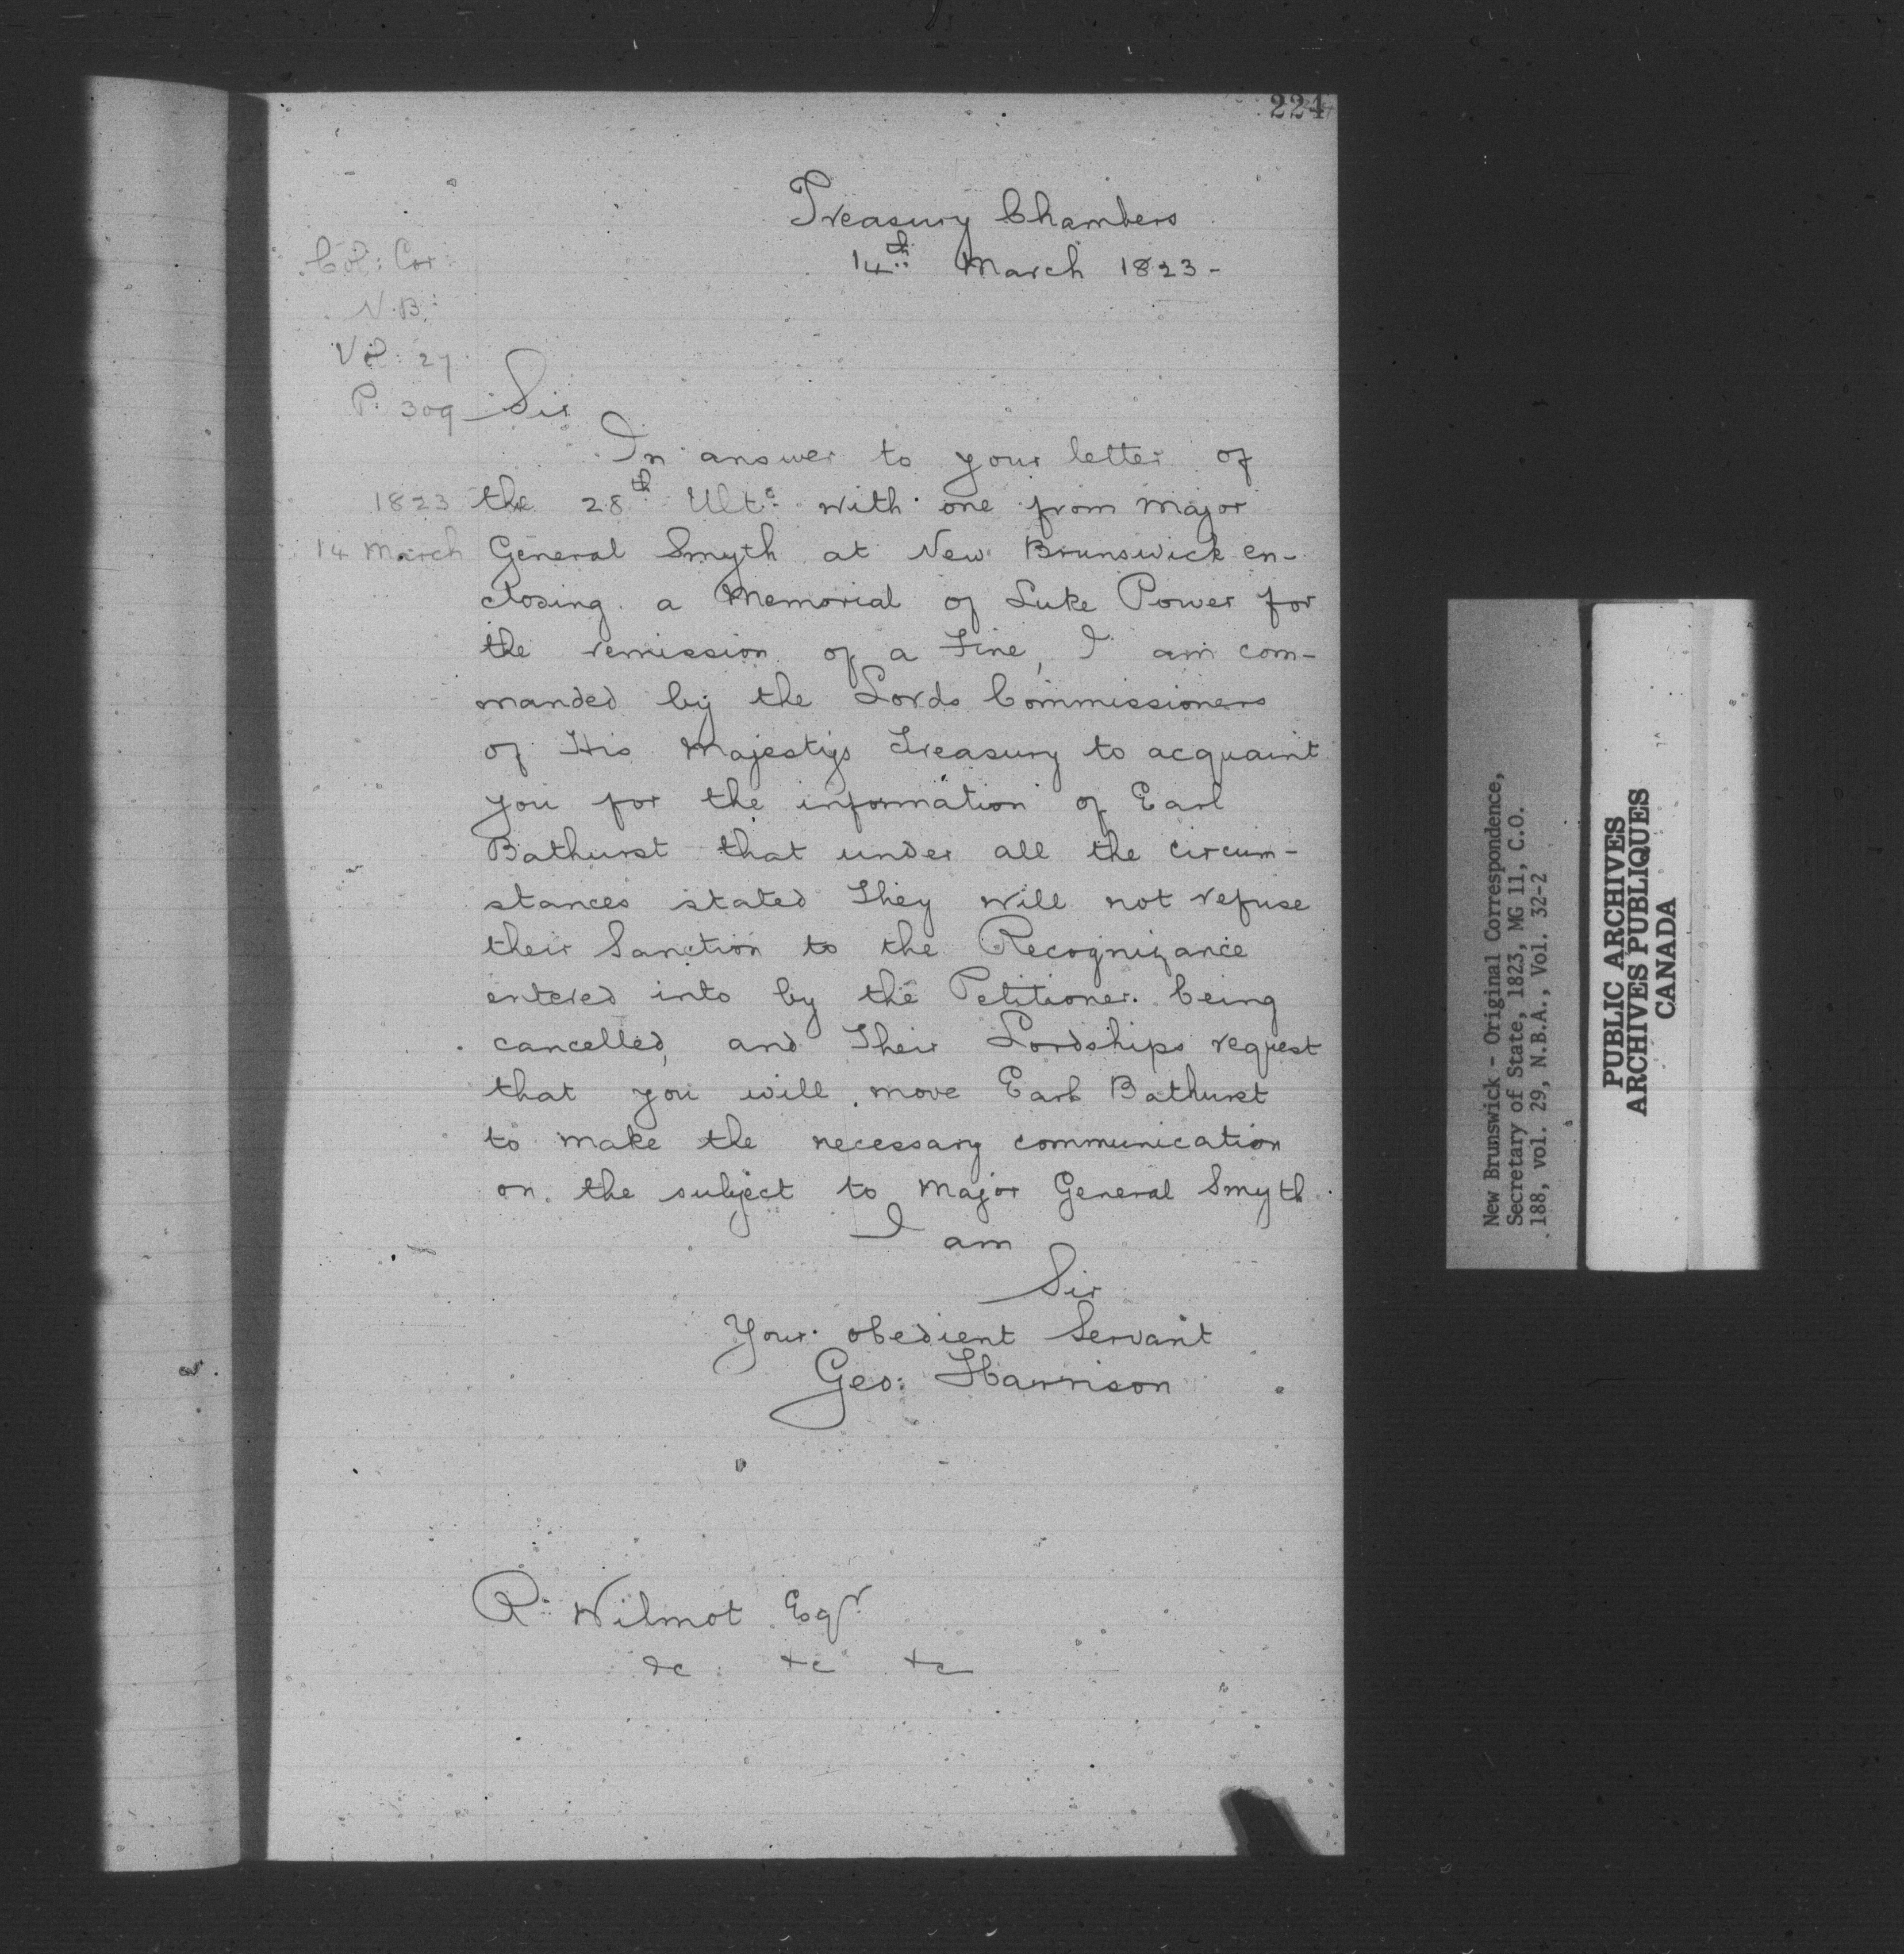 224
Treasury Chambers
14th March 1823-
Col: Cor:
N.B.
Vol: 27
P. 309
Sir
In answer to your letter of
1823
the 28th Ulto: with one from Major
14 March
General Smyth at New Brunswick en-
closing a Memorial of Luke Power for
the remission of a Fine, I am com-
manded by the Lords Commissioners
of His Majestys Treasury to acquaint
you for the information of Earl
Bathurst that under all the circum-
stances stated They will not refuse
their Sanction to the Recognizance
entered into by the Petitioner being
cancelled, and Their Lordships request
that you will move Earl Bathurst
to make the necessary communication
on the subject to Major General Smyth.
I am
Sir
Your obedient Servant
Geo: Harrison
R. Wilmot Esqr
&c &c &c
New Brunswick - Original Correspondence,
Secretary of State, 1823, MG 11, C.O.
188, vol. 29, N.B.A., Vol. 32-2
PUBLIC ARCHIVES
ARCHIVES PUBLIQUES
CANADA